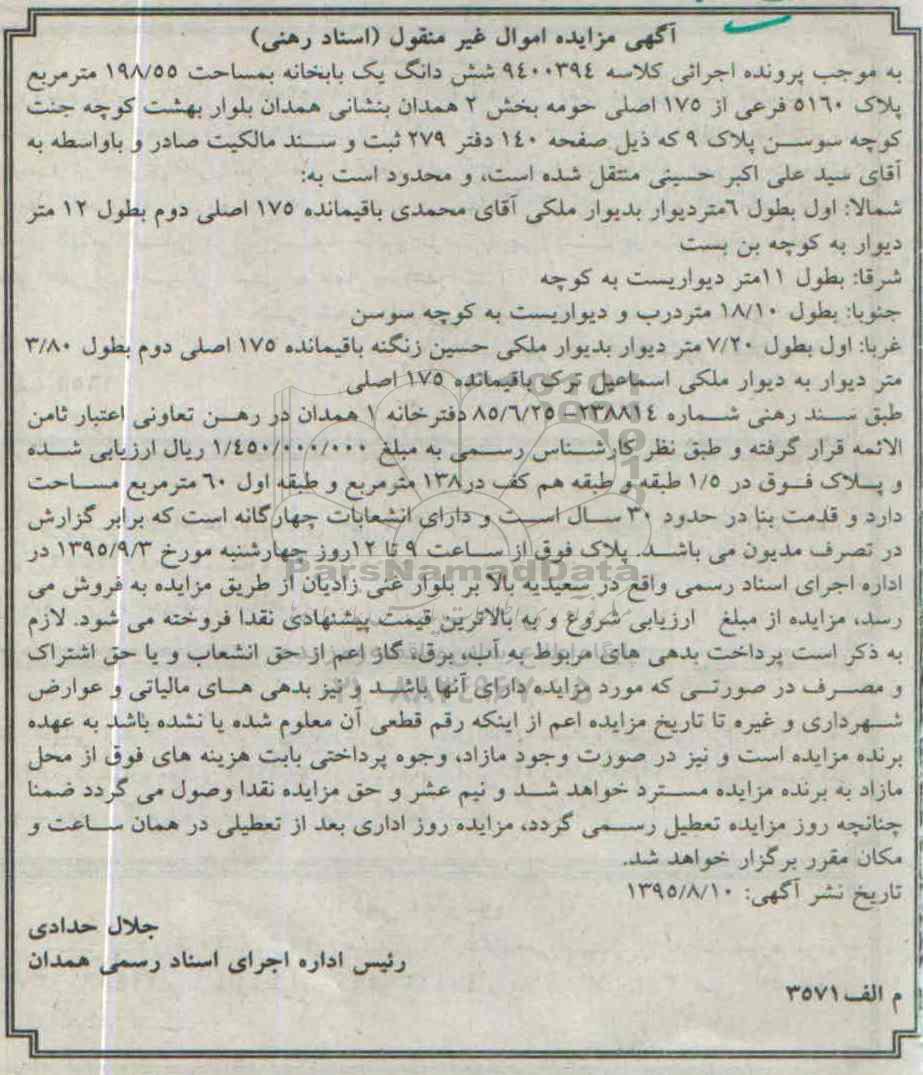 آگهی مزایده اموال غیر منقول (اسناد رهنی)
به موجب پرونده اجرائی کلاسه ۹٤۰۰۳۹٤ شش دانگ یک بابخانه بمساحت ۱۹۸/٥٥ مترمربع
پلاک ٥۱٦۰ فرعی از ۱۷٥ اصلی حومه بخش ۲ همدان بنشانی همدان بلوار بهشت کوچه جنت
کوچه سوسن پلاک ۹ که ذیل صفحه ۱٤۰ دفتر ۲۷۹ ثبت و سند مالکیت صادر و باواسطه به
آقای سید علی اکبر حسینی منتقل شده است، و محدود است به:
شمالا: اول بطول ٦متردیوار بدیوار ملکی آقای محمدی باقیمانده ۱۷٥ اصلی دوم بطول ۱۲ متر
دیوار به کوچه بن بست
شرقا: بطول ۱۱متر دیواریست به کوچه
جنوبا: بطول ۱۸/۱۰ متردرب و دیواریست به کوچه سوسن
غربا: اول بطول ۷/۲۰ متر دیوار بدیوار ملکی حسین زنگنه باقیمانده ۱۷٥ اصلی دوم بطول ۳/۸۰
متر دیوار به دیوار ملکی اسماعیل ترک باقیمانده ۱۷٥ اصلی
طبق سند رهنی شماره ۲۳۸۸۱٤-۸٥/٦/۲٥ دفترخانه ۱ همدان در رهن تعاونی اعتبار ثامن
الائمه قرار گرفته و طبق نظر کارشناس رسمی به مبلغ ۱/٤٥۰/۰۰۰/۰۰۰ ریال ارزیابی شده
و پلاک فوق در ۱/٥ طبقه و طبقه هم کف در۱۳۸ مترمربع و طبقه اول ٦۰ مترمربع مساحت
دارد و قدمت بنا در حدود ۳۰ سال است و دارای انشعابات چهارگانه است که برابر گزارش
در تصرف مدیون می باشد. پلاک فوق از ساعت ۹ تا ۱۲روز چهارشنبه مورخ ۱۳۹٥/۹/۳ در
اداره اجرای اسناد رسمی واقع در سعیدیه بالا بر بلوار غنی زادیان از طریق مزایده به فروش می
رسد، مزایده از مبلغ ارزیابی شروع و به بالاترین قیمت پیشنهادی نقدا فروخته می شود. لازم
به ذکر است پرداخت بدهی های مربوط به آب، برق، گاز اعم از حق انشعاب و یا حق اشتراک
و مصرف در صورتی که مورد مزایده دارای آنها باشد و نیز بدهی های مالیاتی و عوارض
شهرداری و غیره تا تاریخ مزایده اعم از اینکه رقم قطعی آن معلوم شده یا نشده باشد به عهده
برنده مزایده است و نیز در صورت وجود مازاد، وجوه پرداختی بابت هزینه های فوق از محل
مازاد به برنده مزایده مسترد خواهد شد و نیم عشر و حق مزایده نقدا وصول می گردد ضمنا
چنانچه روز مزایده تعطیل رسمی گردد، مزایده روز اداری بعد از تعطیلی در همان ساعت و
مکان مقرر برگزار خواهد شد.
تاریخ نشر آگهی: ۱۳۹٥/۸/۱۰
جلال حدادی
رئیس اداره اجرای اسناد رسمی همدان
م الف ۳٥۷۱
ParsNamadData